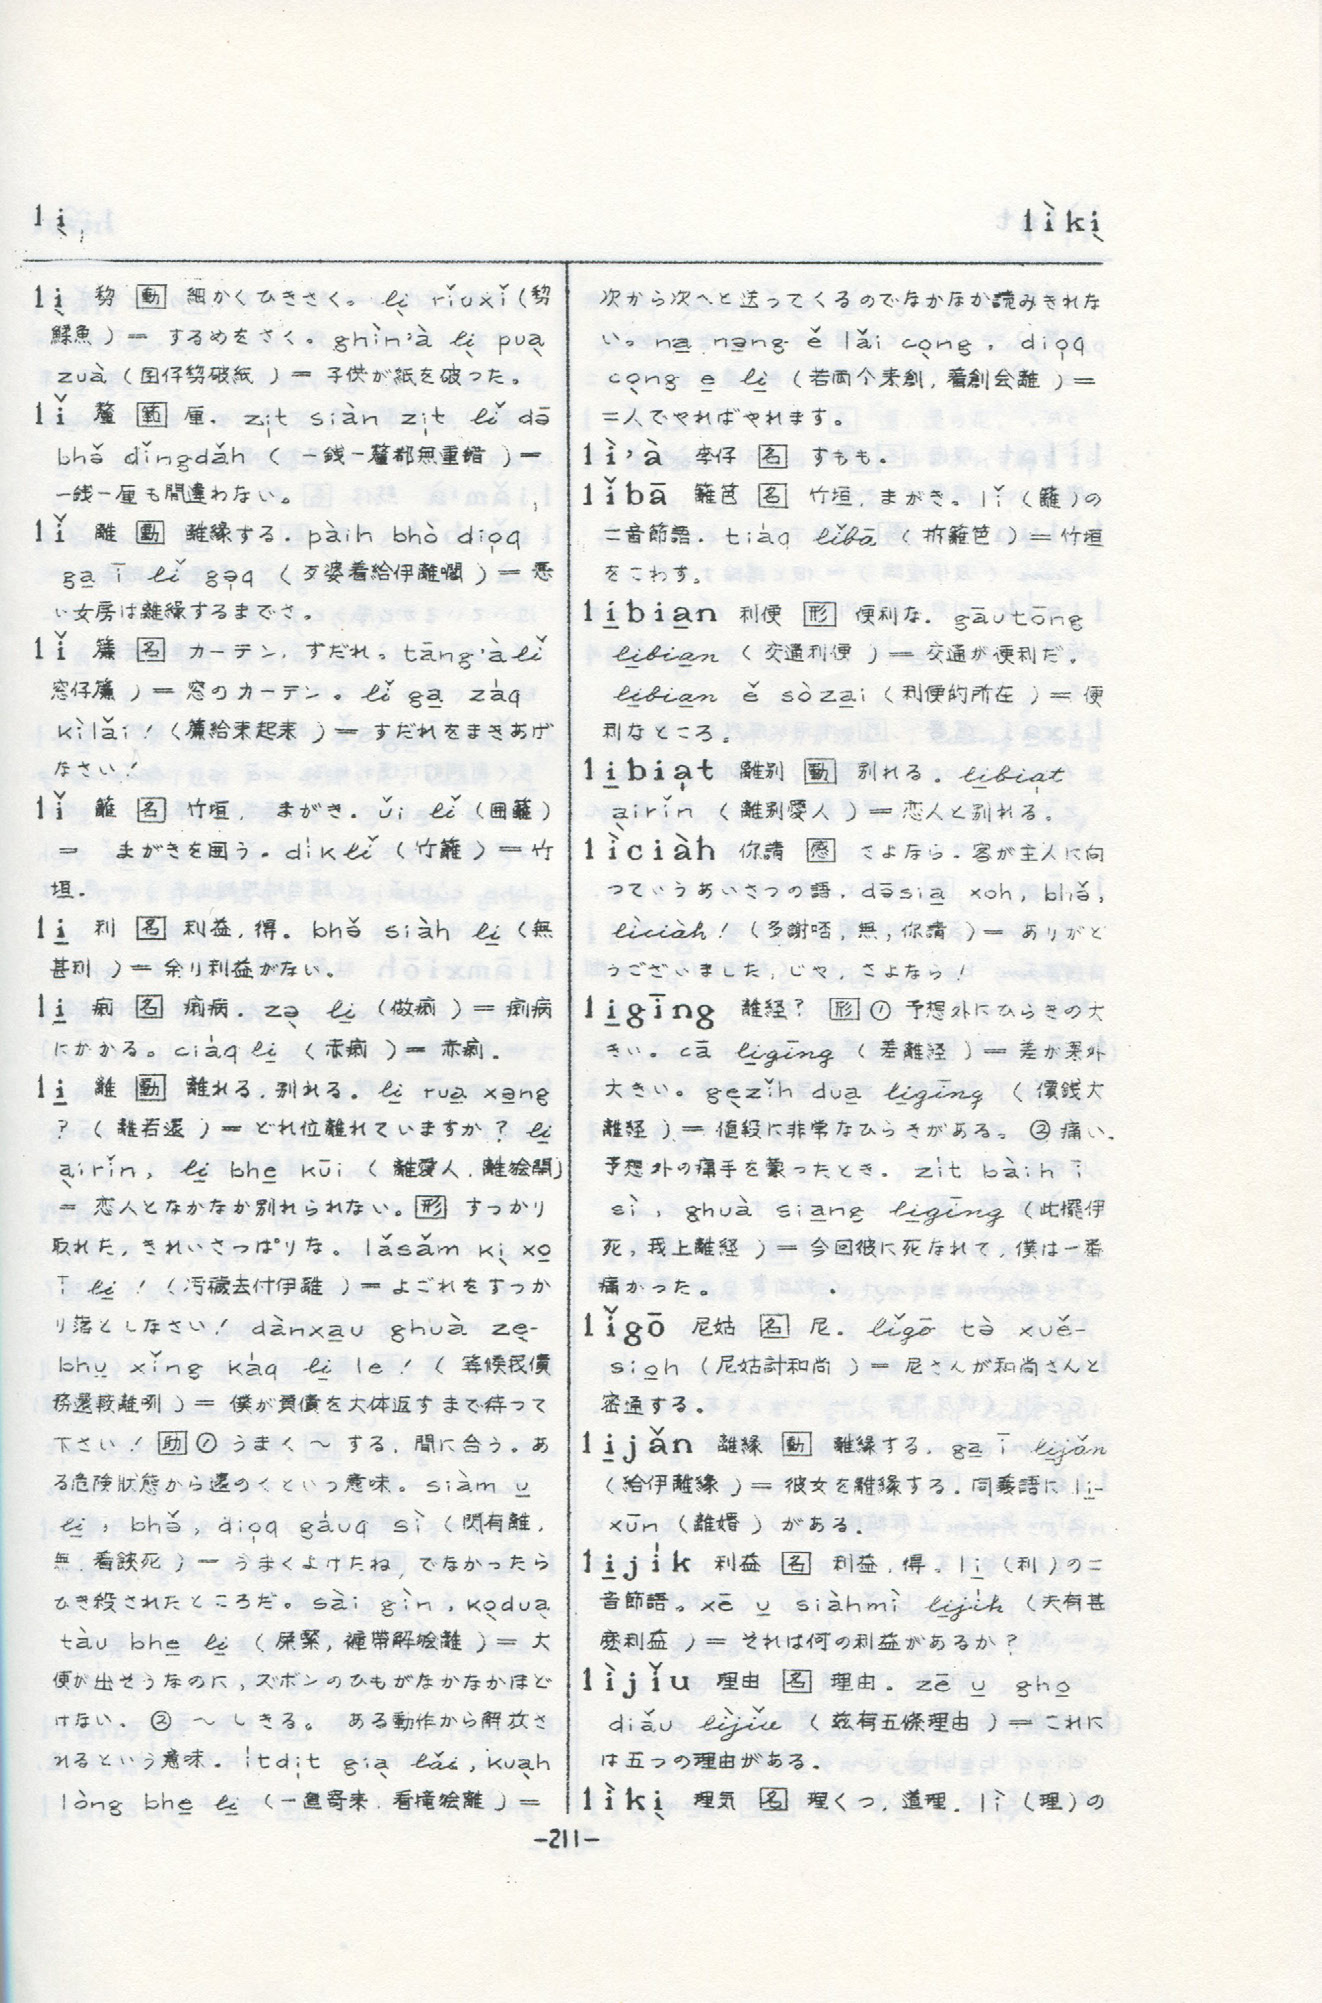 lị
lìkị
lị 剺 動 細かくひきさく。lị riǔxǐ(剺
鰇魚)＝するめをさく。ghìn'à lị puạ
zuà (囝仔剺破紙)＝子供が紙を破った。
lǐ 釐 範 厘. zịt siàn zịt lǐ dō
bhǒ dǐngdǎh (一銭一釐都無重錯)＝
一銭一厘も間違わない。
lǐ 離 動 離縁する. pàih bhò dioq
ga ī lǐ gəq (歹婆着給伊離嗰)＝悪
い女房は離縁するまでさ。
lǐ 簾 名 カーテン, すだれ。tāng'à lǐ
窓仔簾)＝窓のカーテン。lǐ ga záq
kìlǎi! (簾給束起来)＝すだれをまきあげ
なさい!
lǐ 籬 名 竹垣, まがき. ǔi lǐ (囲籬)
＝ まがきを囲う. díklǐ (竹籬)＝竹
垣.
li̱ 利 名 利益, 得。bhǒ siàh li̱ (無
甚利)＝余り利益がない。
li̱ 痢 名 痢病. zə̣ li̱ (做痢)＝痢病
にかかる。ciáq li̱ (赤痢)＝赤痢.
li̱ 離 動 離れる, 別れる. li̱ rua̱ xə̱ng
? (離若遠)＝どれ位離れていますか? li̱
ạirǐn, li̱ bhe̱ kūi (離愛人, 離絵開)
＝恋人となかなか別れられない。形 すっかり
取れた, きれいさっぱりな。lǎsǎm kị xo̱
ī li̱! (汚穢去付伊離)＝よごれをすっか
り落としなさい! dànxa̱u ghuà zẹ-
bhu̱ xǐng káq li̱ le! (等候我債
務還較離咧)＝僕が負債を大体返すまで待って
下さい! 助 ① うまく～する, 間に合う。あ
る危険状態から遠のくといつ意味。siàm u̱
li̱, bhǒ, dioq gáuq sì (閃有離,
無, 着鋏死)＝うまくよけたね, でなかったら
ひき殺されたところだ。sài gìn, kọduạ
tàu bhe̱ li̱ (屎緊, 褲帯解絵離)＝大
便が出そうなのに, ズボンのひもがなかなかほど
けない. ② ～しきる。 ある動作から解放さ
れるという意味. ítdịt giạ lǎi, kuạh
lòng bhe̱ li̱ (一直寄来, 看攏絵離)＝
次から次へと送ってくるのでなかなか読みきれな
い。na̱ nə̱ng ě lǎi cọng, dioq
cọng e̱ li̱ (若両个来創, 着創会離)＝
二人でやればやれます。
lì'à 李仔 名 すもも.
lǐbā 籬笆 名 竹垣, まがき. lǐ (籬)の
二音節語. tiáq lǐbā (拆籬笆)＝竹垣
をこわす。
li̱bia̱n 利便 形 便利な. gāutōng
li̱bia̱n (交通利便)＝交通が便利だ。
li̱bia̱n ě sòza̱i (利便的所在)＝便
利なところ。
li̱biạt 離別 動 別れる. li̱biạt
ạirǐn (離別愛人)＝恋人と別れる。
lìciàh 你請 感 さよなら. 客が主人に向
っていうあいさつの語. dōsia̱ xoh, bhǒ,
lìciàh! (多謝唔, 無, 你請)＝ありがと
うございました, じゃ, さよなら!
li̱gīng 離経? 形 ① 予想外にひらきの大
きい。cā li̱gīng (差離経)＝差が案外
大きい。gẹzǐh dua̱ li̱gīng (價銭大
離経)＝値段に非常なひらきがある。② 痛い.
予想外の痛手を蒙ったとき. zít bàih ī
sì, ghuà sia̱ng li̱gīng (此擺伊
死, 我上離経)＝今回彼に死なれて, 僕は一番
痛かった。
lǐgō 尼姑 名 尼. lǐgō tò xuě-
sio̱h (尼姑討和尚)＝尼さんが和尚さんと
密通する。
li̱jǎn 離縁 動 離縁する. ga̱ ī li̱jǎn
(給伊離縁)＝彼女を離縁する. 同義語に li̱-
xūn (離婚)がある.
li̱jík 利益 名 利益, 得. li̱ (利)の二
音節語。xē u̱ siàhmì li̱jík (夫有甚
麼利益)＝それは何の利益があるか?
lìjǐu 理由 名 理由. zē u̱ gho̱
diǎu lìjǐu (玆有五條理由)＝これに
は五つの理由がある.
lìkị 理気 名 理くつ, 道理. lì (理)の
-211-